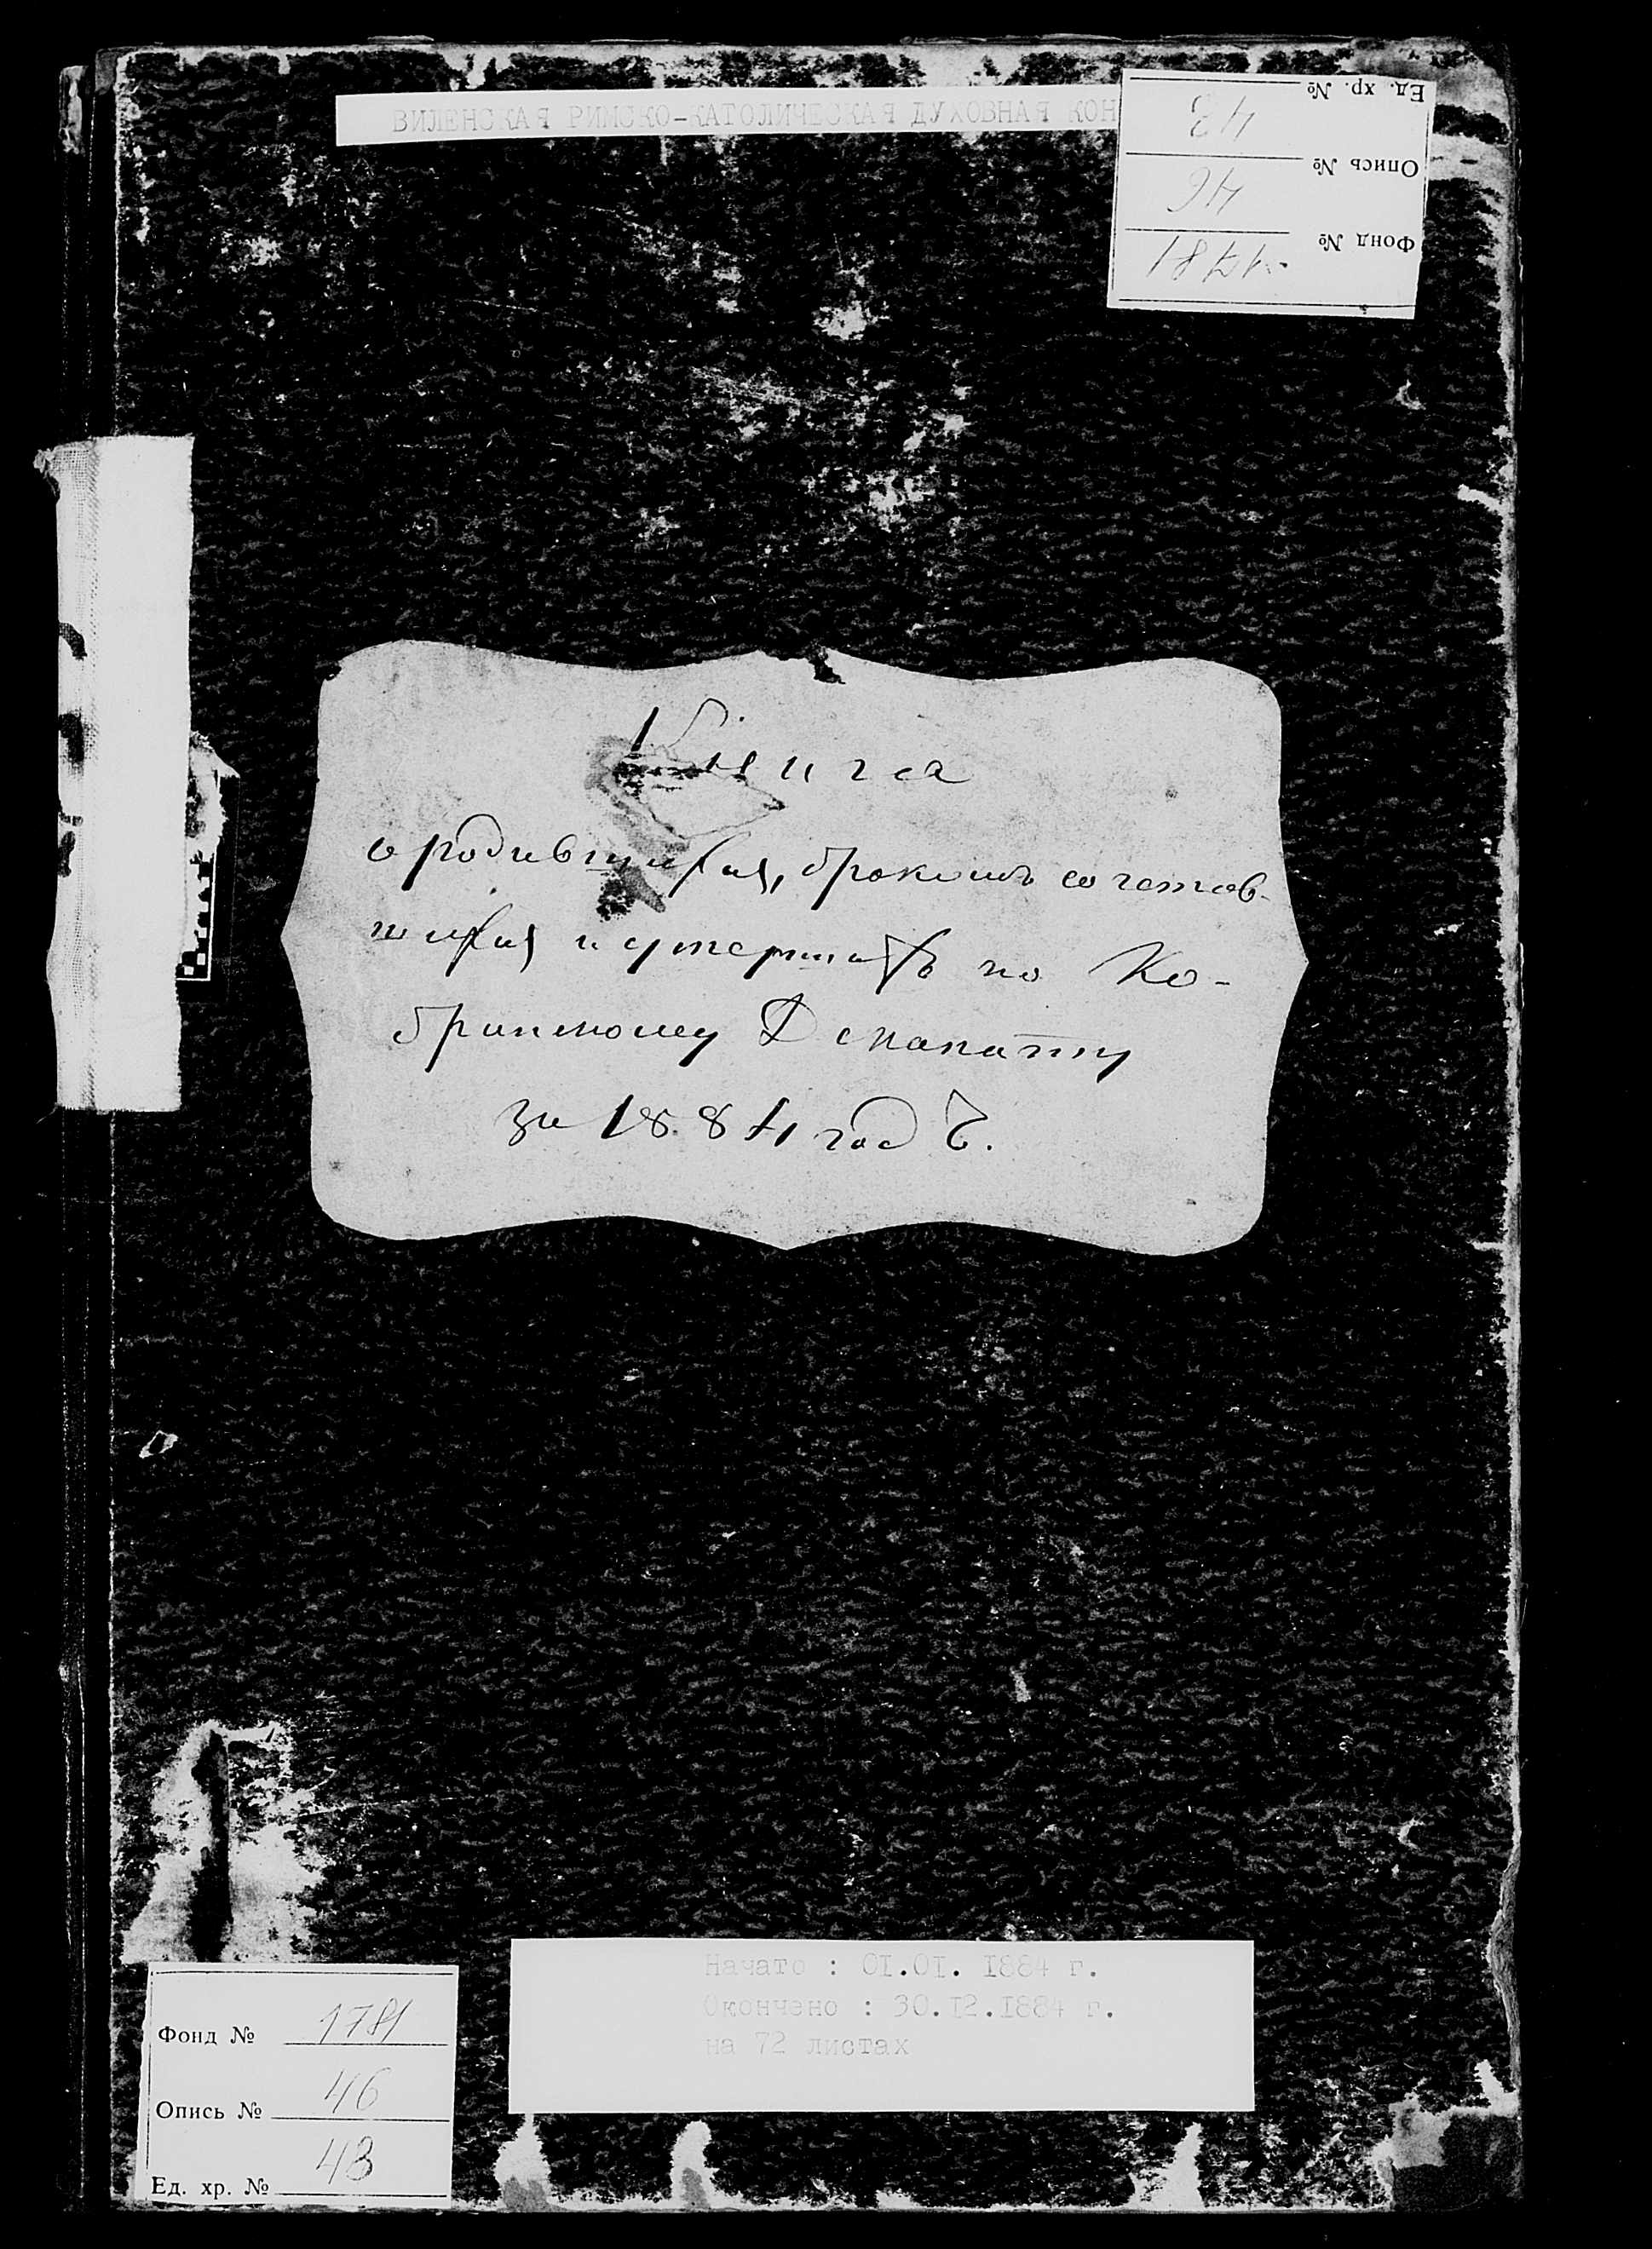 ВИЛЕНСКАЯ РИМСКО-КАТОЛИЧЕСКАЯ ДУХОВНАЯ КОН
Ед. хр. № 43
Опись № 46
Фонд № 1781
Книга
о родившихся, бракомъ сочетав-
шихся и умершихъ по Ко-
бринскому Деканату
за 1884 годъ.
Начато : 01.01. 1884 г.
Окончено : 30.12.1884 г.
на 72 листах
Фонд № 1781
Опись № 46
Ед. хр. № 43